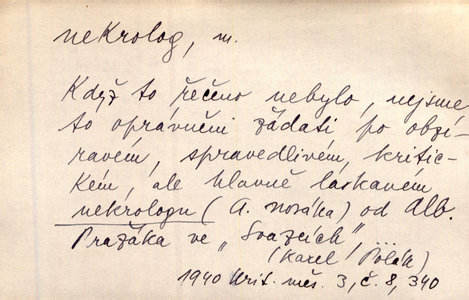 nekrolog, m.
Když to řečeno nebylo, nejsme
to oprávněni žádati po obzí-
ravém, spravedlivém, kritic-
kém, ale hlavně laskavém
nekrologu (A. Nováka) od Alb.
Pražáka ve „Svazcích"
(Karel Polák)
1940 Krit. měs. 3, č. 8, 340